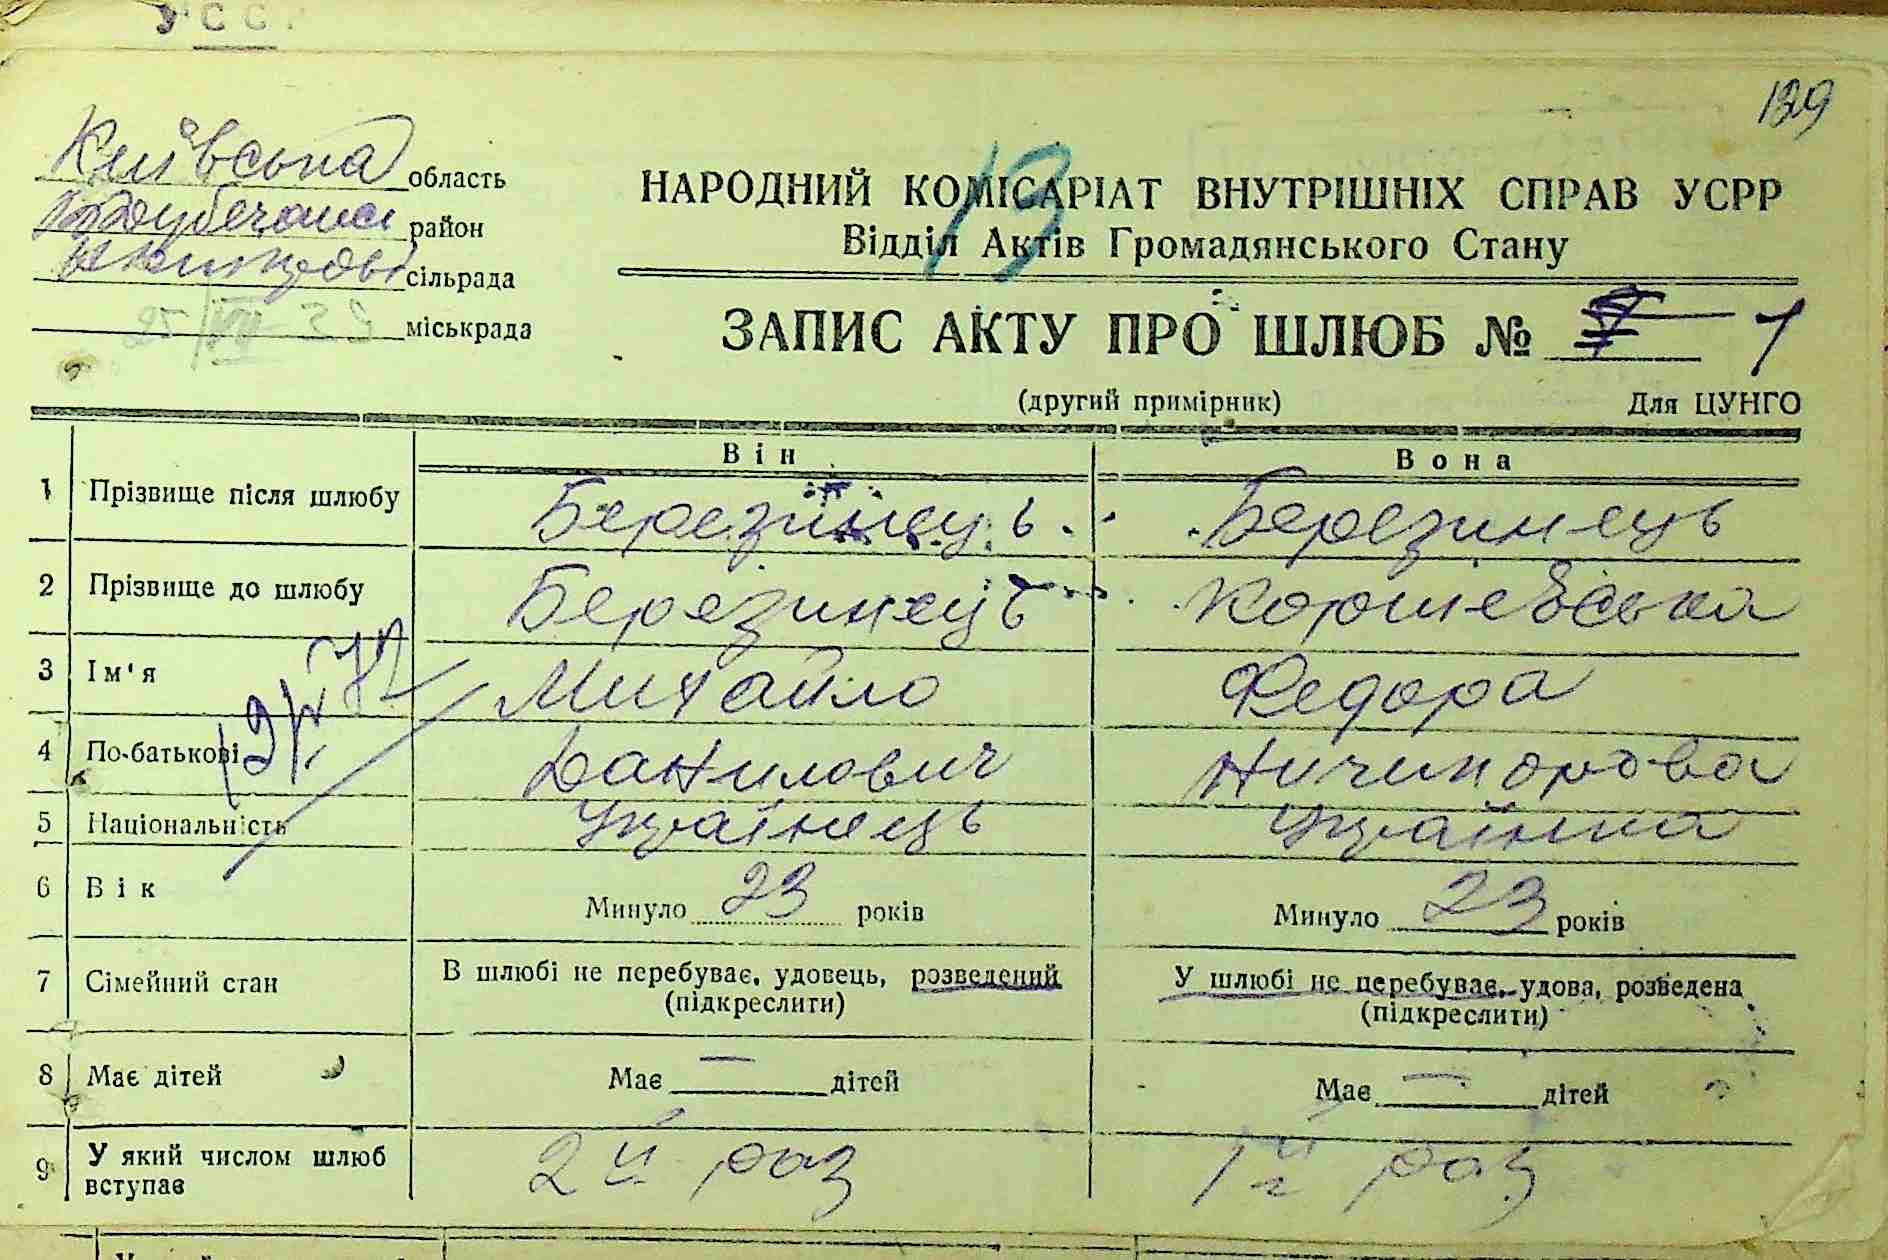 УССР
129
Київська область
район
сільрада
25/VII 39 міськрада
НАРОДНИЙ КОМІСАРІАТ ВНУТРІШНІХ СПРАВ УСРР
19
Відділ Актів Громадянського Стану
ЗАПИС АКТУ ПРО ШЛЮБ № 1
(другий примірник) Для ЦУНГО
Він Вона
1 Прізвище після шлюбу Березинець Березинець
2 Прізвище до шлюбу Березинець Коршевська
3 Ім'я Михайло Федора
4 По-батькові Данилович Ничипорова
5 Національність Українець Українка
6 Вік Минуло 23 років Минуло 23 років
7 Сімейний стан В шлюбі не перебуває, удовець, розведений (підкреслити) У шлюбі не перебуває, удова, розведена (підкреслити)
8 Має дітей Має — дітей Має — дітей
9 У який числом шлюб вступає 2й раз 1й раз